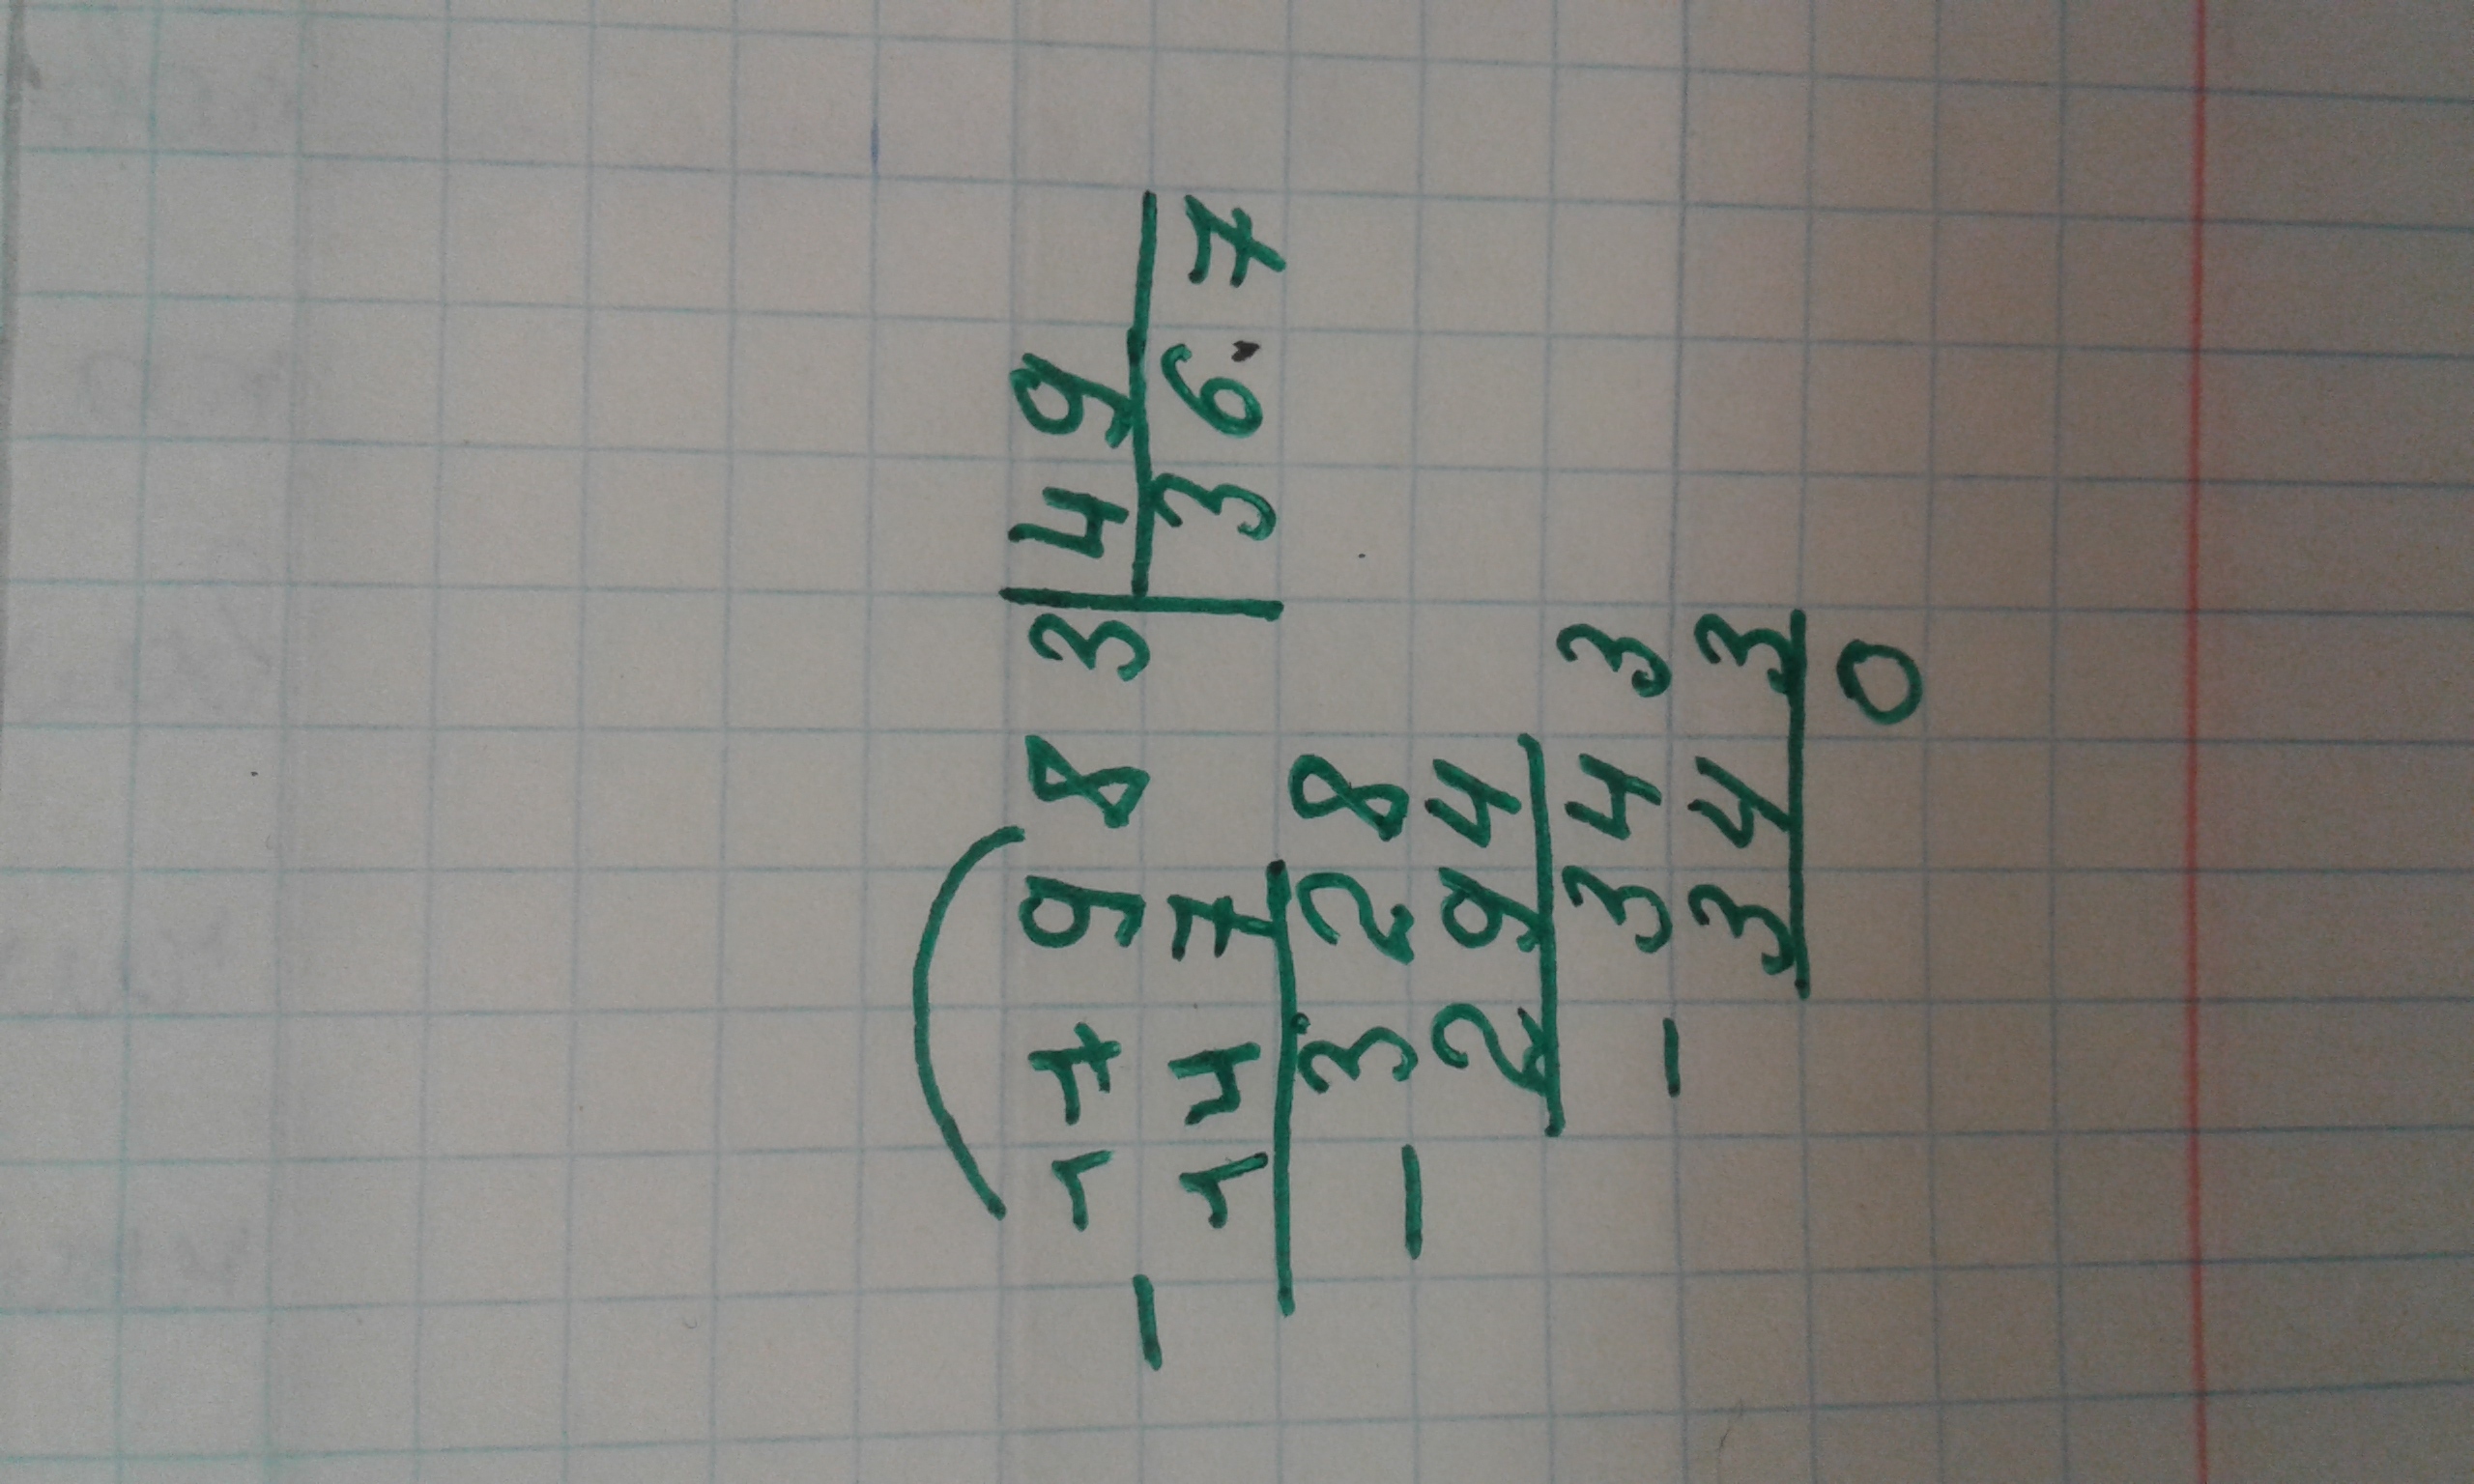 17983 | 49
- 147 | 36.7
328
- 294
343
- 343
0